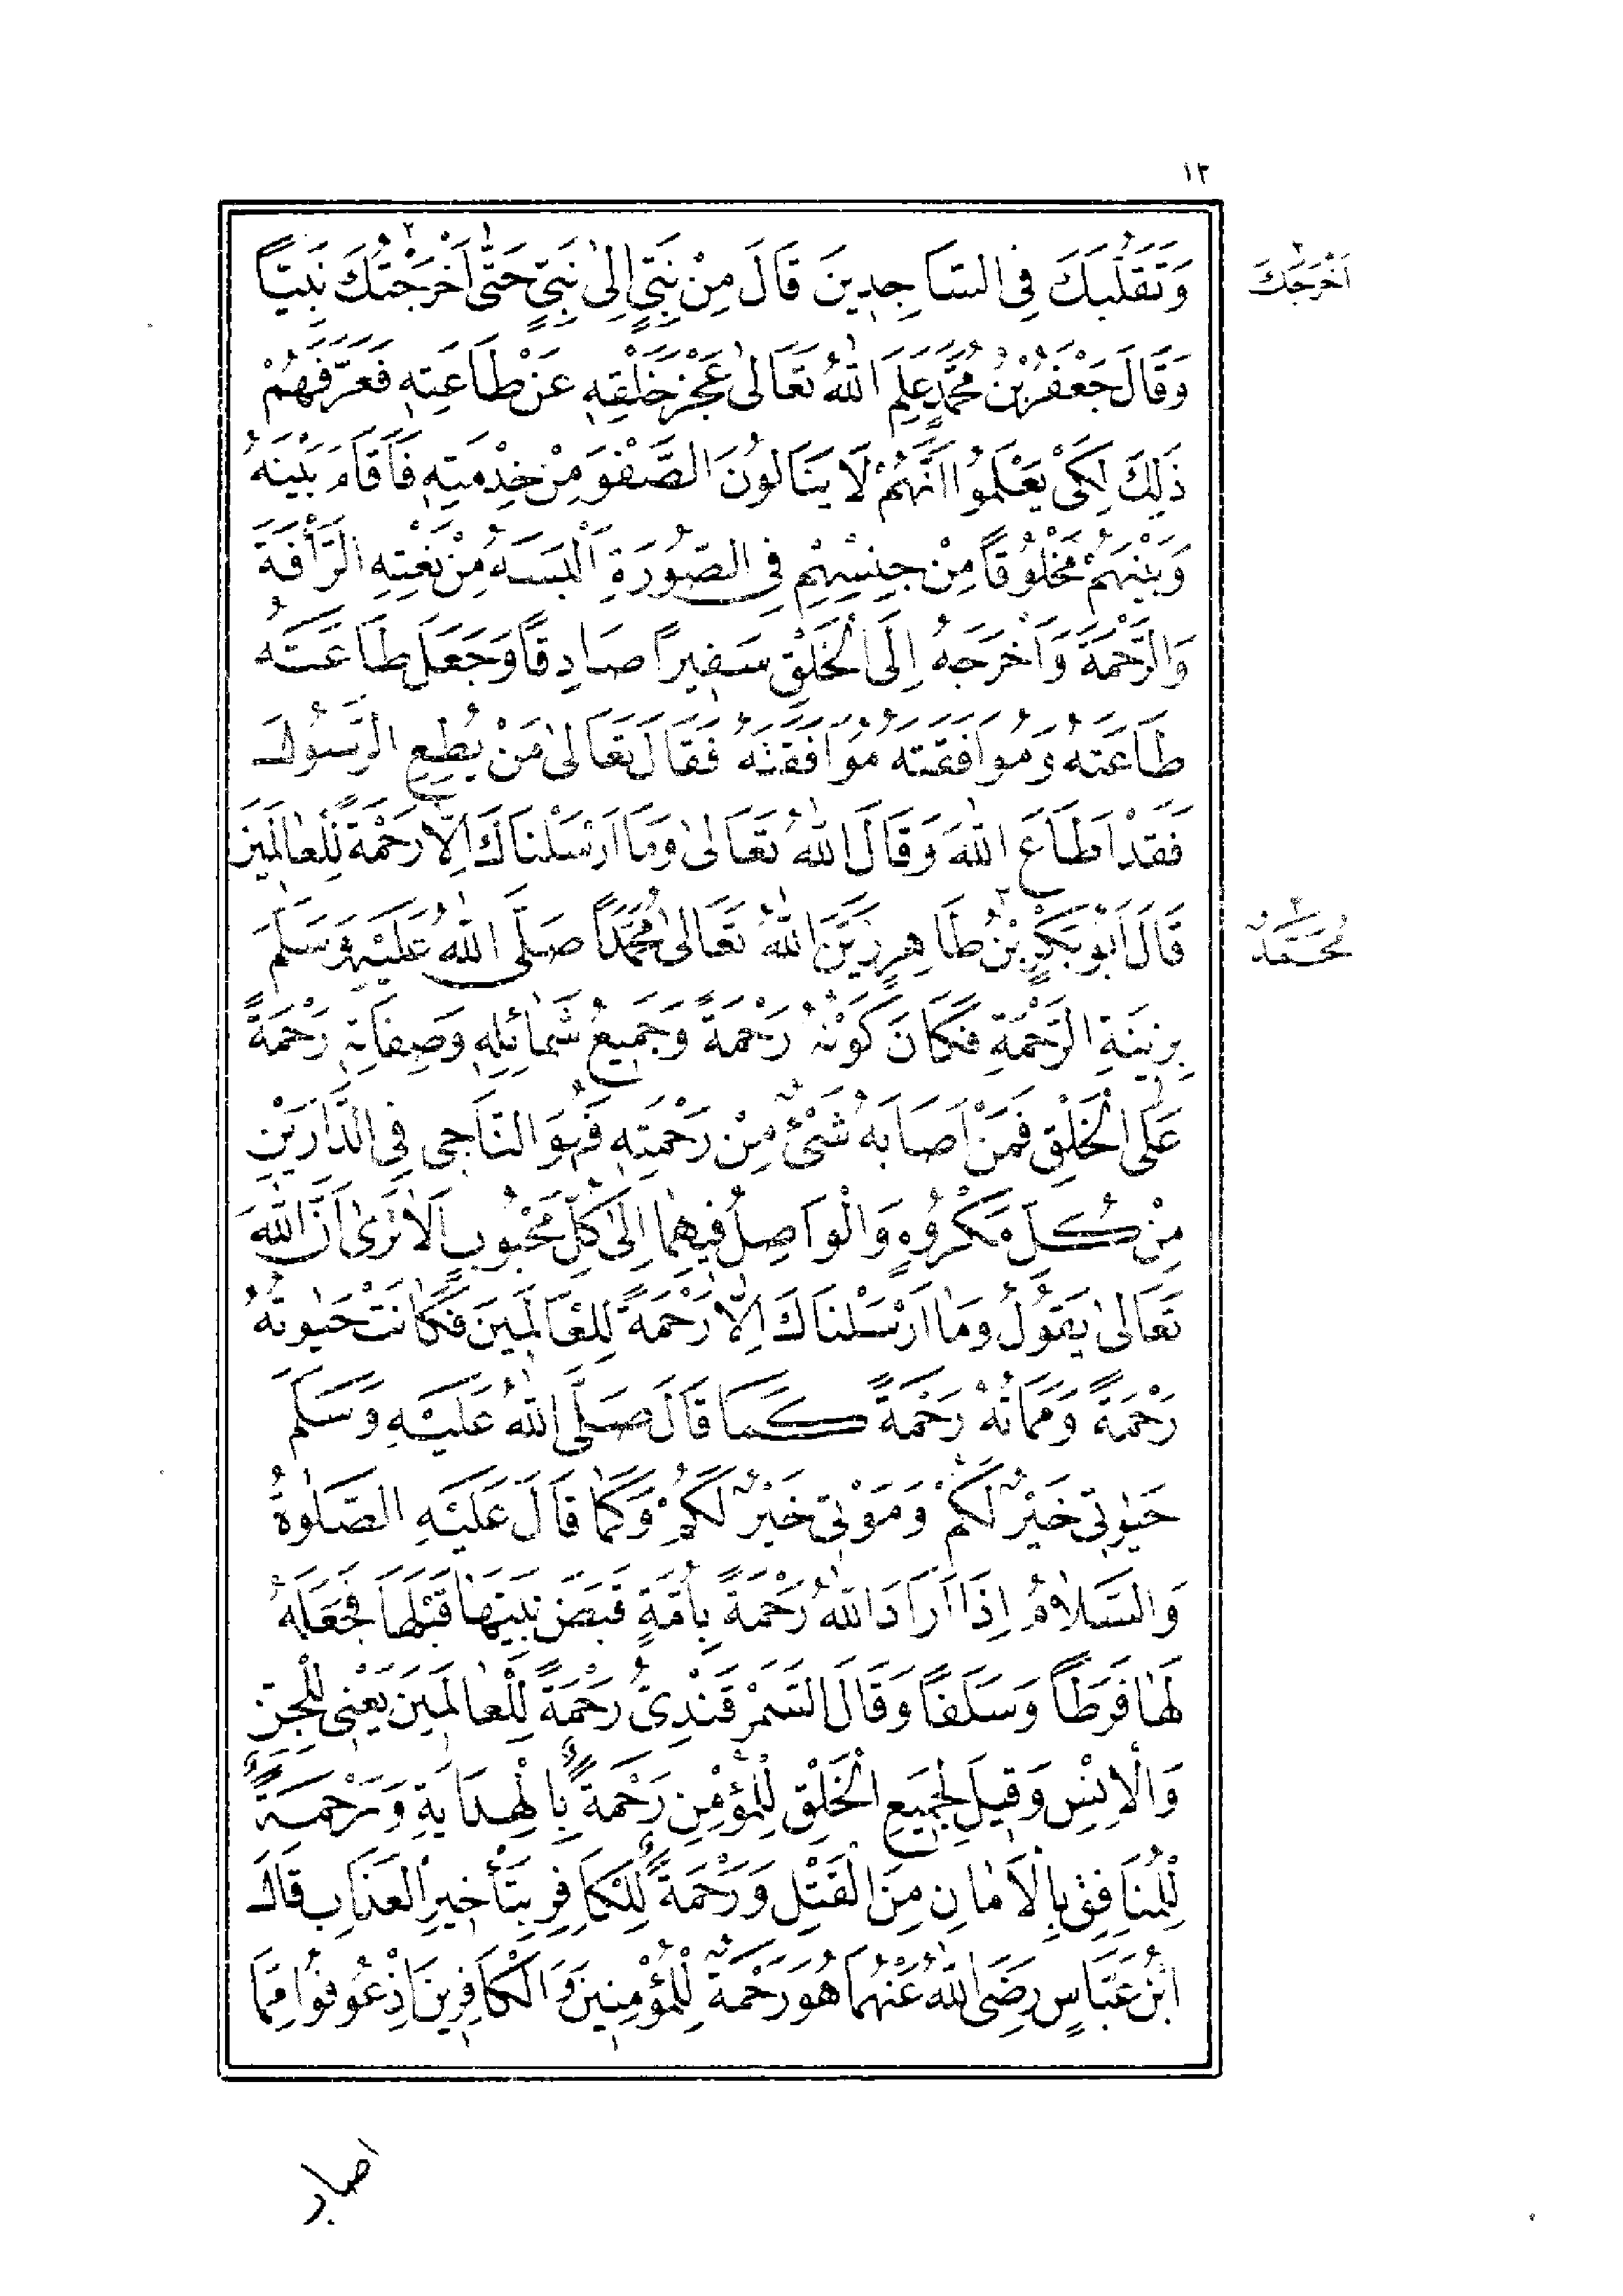 ١٢
وَتَقَلُّبَكَ فِى السَّاجِدِينَ قَالَ مِنْ نَبِيٍّ إِلٰى نَبِيٍّ حَتّٰى أَخْرَجْتُكَ نَبِيّاً
أَخْرَجَكَ
وَقَالَ جَعْفَرُ بْنُ مُحَمَّدٍ عَلِمَ اللّٰهُ تَعَالٰى عَجْزَ خَلْقِهِ عَنْ طَاعَتِهِ فَعَرَّفَهُمْ
ذَلِكَ لِكَىْ يَعْلَمُوا اَنَّهُمْ لَا يَنَالُونَ الصَّفْوَ مِنْ خِدْمَتِهِ فَأَقَامَ بَيْنَهُ
وَبَيْنَهُمْ مَخْلُوقاً مِنْ جِنْسِهِمْ فِى الصُّورَةِ اَلْبَسَهُ مِنْ نَعْتِهِ الرَّأْفَةَ
وَالرَّحْمَةَ وَأَخْرَجَهُ إِلَى الْخَلْقِ سَفِيراً صَادِقاً وَجَعَلَ طَاعَتَهُ
طَاعَتَهُ وَمُوَافَقَتَهُ مُوَافَقَتَهُ فَقَالَ تَعَالٰى مَنْ يُطِعِ الرَّسُولَ
فَقَدْ اَطَاعَ اللّٰهَ وَقَالَ اللّٰهُ تَعَالٰى وَمَا اَرْسَلْنَاكَ اِلَّا رَحْمَةً لِلْعَالَمِينَ
قَالَ اَبُو بَكْرِ بْنُ طَاهِرٍ زَيَّنَ اللّٰهُ تَعَالٰى مُحَمَّداً صَلَّى اللّٰهُ عَلَيْهِ وَسَلَّمَ
مُحَمَّدٌ
بِزِينَةِ الرَّحْمَةِ فَكَانَ كَوْنُهُ رَحْمَةً وَجَمِيعُ شَمَائِلِهِ وَصِفَاتِهِ رَحْمَةً
عَلَى الْخَلْقِ فَمَنْ اَصَابَهُ شَىْءٌ مِنْ رَحْمَتِهِ فَهُوَ النَّاجِى فِى الدَّارَيْنِ
مِنْ كُلِّ مَكْرُوهٍ وَالْوَاصِلُ فِيهِمَا اِلٰى كُلِّ مَحْبُوبٍ اَلَا تَرٰى اَنَّ اللّٰهَ
تَعَالٰى يَقُولُ وَمَا اَرْسَلْنَاكَ اِلَّا رَحْمَةً لِلْعَالَمِينَ فَكَانَتْ حَيٰوتُهُ
رَحْمَةً وَمَمَاتُهُ رَحْمَةً كَمَا قَالَ صَلَّى اللّٰهُ عَلَيْهِ وَسَلَّمَ
حَيٰوتِى خَيْرٌ لَكُمْ وَمَوْتِى خَيْرٌ لَكُمْ وَكَمَا قَالَ عَلَيْهِ الصَّلٰوةُ
وَالسَّلَامُ اِذَا اَرَادَ اللّٰهُ رَحْمَةً بِأُمَّةٍ قَبَضَ نَبِيَّهَا قَبْلَهَا فَجَعَلَهُ
لَهَا فَرَطاً وَسَلَفاً وَقَالَ السَّمَرْقَنْدِىُّ رَحْمَةً لِلْعَالَمِينَ يَعْنِى لِلْجِنِّ
وَالْاِنْسِ وَقِيلَ لِجَمِيعِ الْخَلْقِ لِلْمُؤْمِنِ رَحْمَةً بِالْهِدَايَةِ وَرَحْمَةً
لِلْمُنَافِقِ بِالْاَمَانِ مِنَ الْقَتْلِ وَرَحْمَةً لِلْكَافِرِ بِتَأْخِيرِ الْعَذَابِ قَالَ
ابْنُ عَبَّاسٍ رَضِىَ اللّٰهُ عَنْهُمَا هُوَ رَحْمَةٌ لِلْمُؤْمِنِينَ وَالْكَافِرِينَ اِذْ عُوفُوا مِمَّا
اصاب